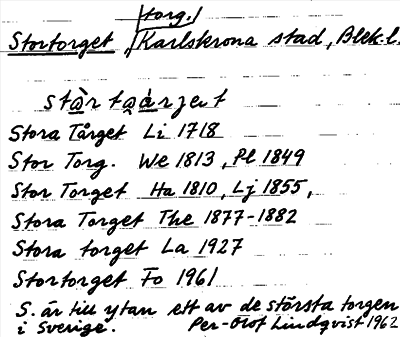 torg.
Stortorget, Karlskrona stad, Blek. l.
Stora Tårget Li 1718
Stor Torg. We 1813, Pl 1849
Stor Torget Ha 1810, Lj 1855,
Stora Torget The 1877-1882
Stora torget La 1927
Stortorget Fo 1961
S. är till ytan ett av de största torgen
i Sverige. Per-Olof Lindqvist 1962